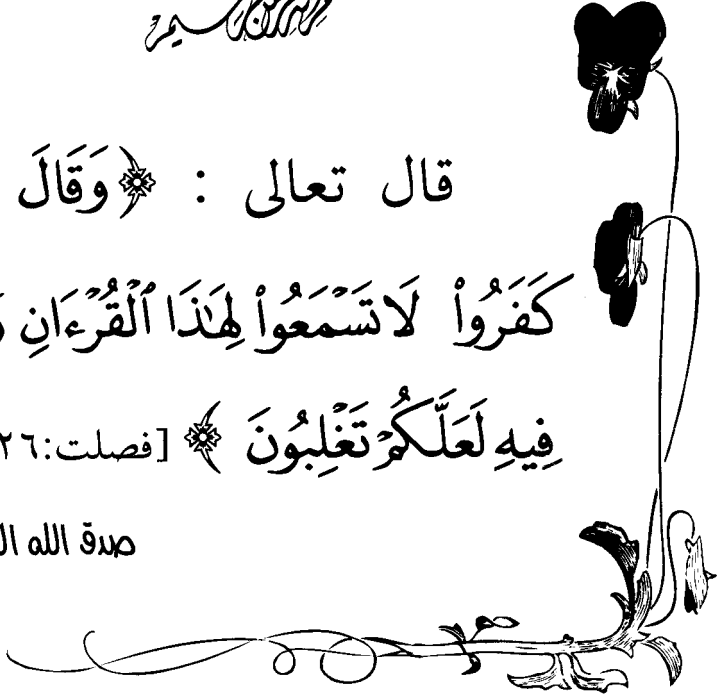 قال تعالى : ﴿ وَقَالَ
كَفَرُواْ لَا تَسْمَعُواْ لِهَٰذَا ٱلْقُرْءَانِ
فِيهِ لَعَلَّكُمْ تَغْلِبُونَ ﴾ [فصلت:٢٦
صدق الله